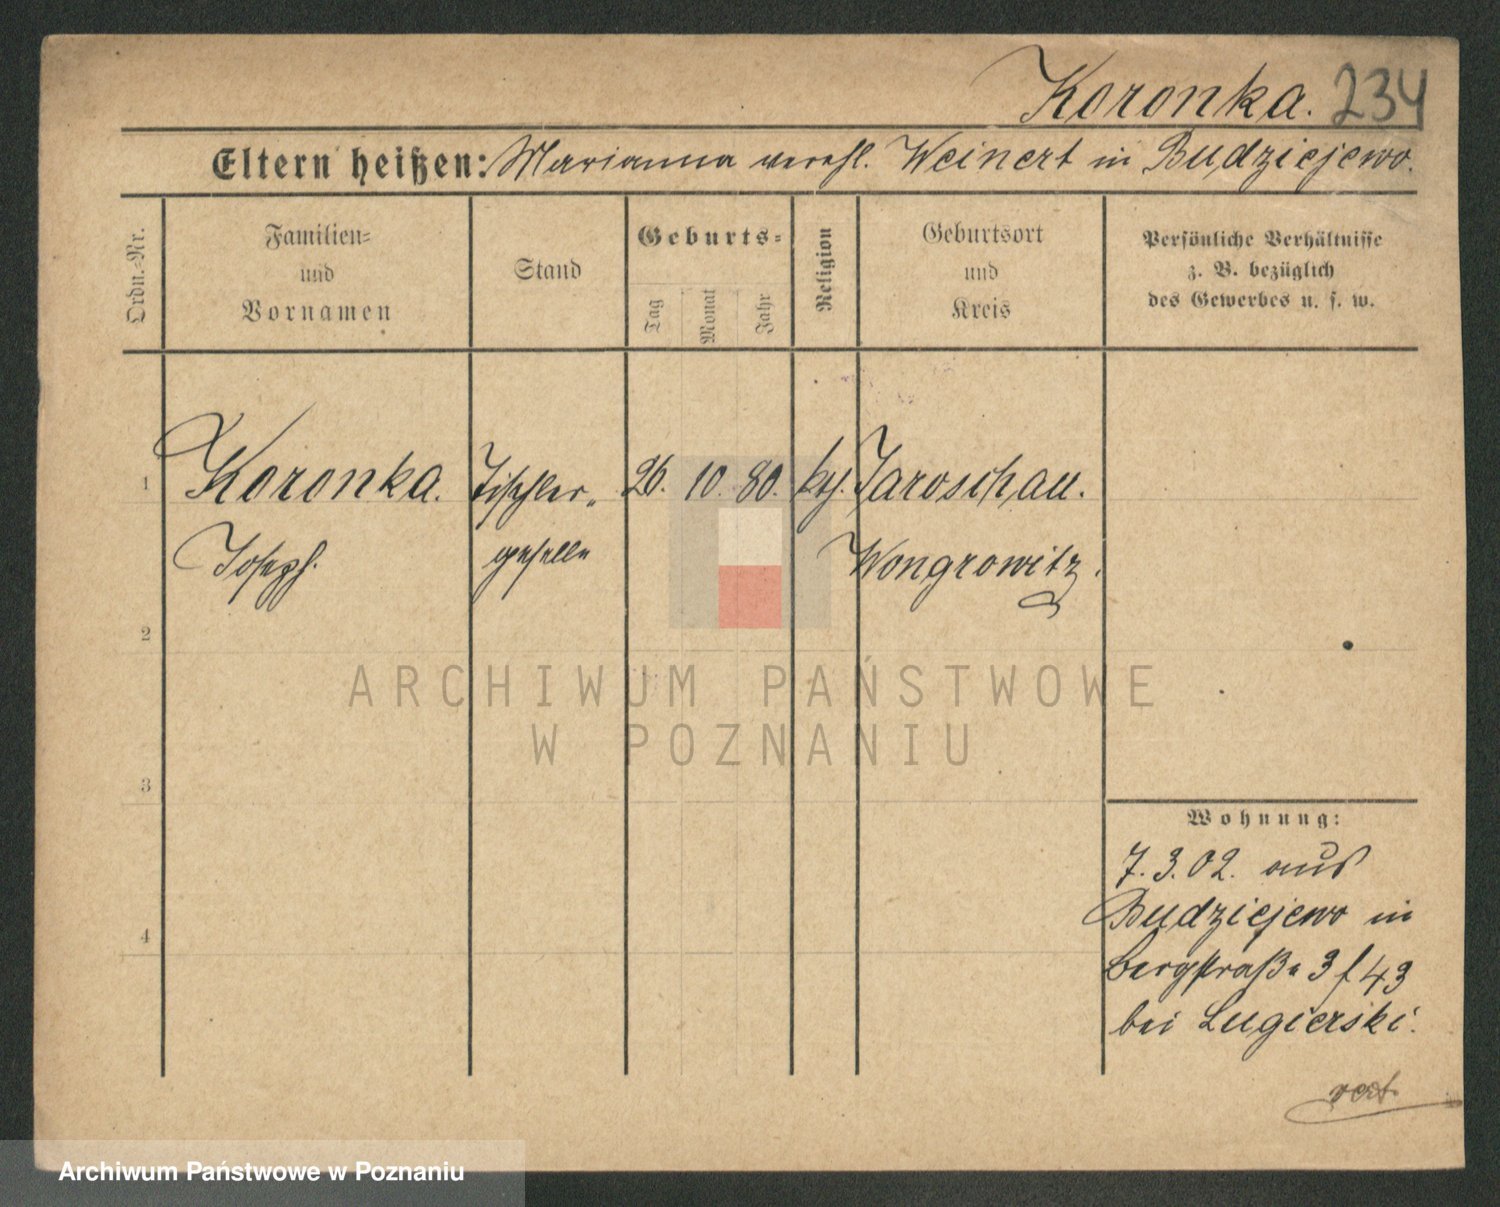 Koronka. 234
Eltern heißen: Marianna verehl. Weinert in Budziejewo.
Ordn.-Nr.
Familien-
und
Vornamen
Stand
Geburts-
Tag
Monat
Jahr
Religion
Geburtsort
und
Kreis
Persönliche Verhältnisse
z. B. bezüglich
des Gewerbes u. s. w.
1 Koronka. Tischler- 26. 10. 80. kth. Jaroschau.
Joseph. geselle Wongrowitz.
2
3
4
Wohnung:
7. 3. 02. aus
Budziejewo in
Bergstraße 3 f 43
bei Lugierski.
vert
ARCHIWUM PAŃSTWOWE
W POZNANIU
Archiwum Państwowe w Poznaniu